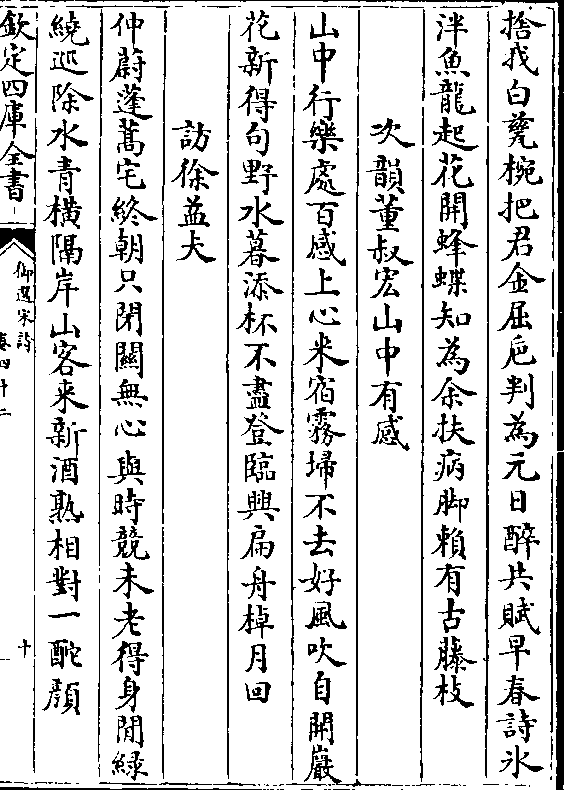 捨我白甆椀把君金屈巵判為元日醉共賦早春詩氷
泮魚龍起花開蜂蝶知為余扶病脚頼有古藤枝
次韻董叔宏山中有感
山中行樂處百感上心来宿霧埽不去好風吹自開巖
花新得句野水暮添杯不盡登臨興扁舟棹月回
訪徐益夫
仲蔚蓬蒿宅終朝只閉關無心與時競未老得身閒緑
繞廵除水青橫隔岸山客来新酒熟相對一酡顔
欽定四庫全書
御選宋詩
卷四十二
十